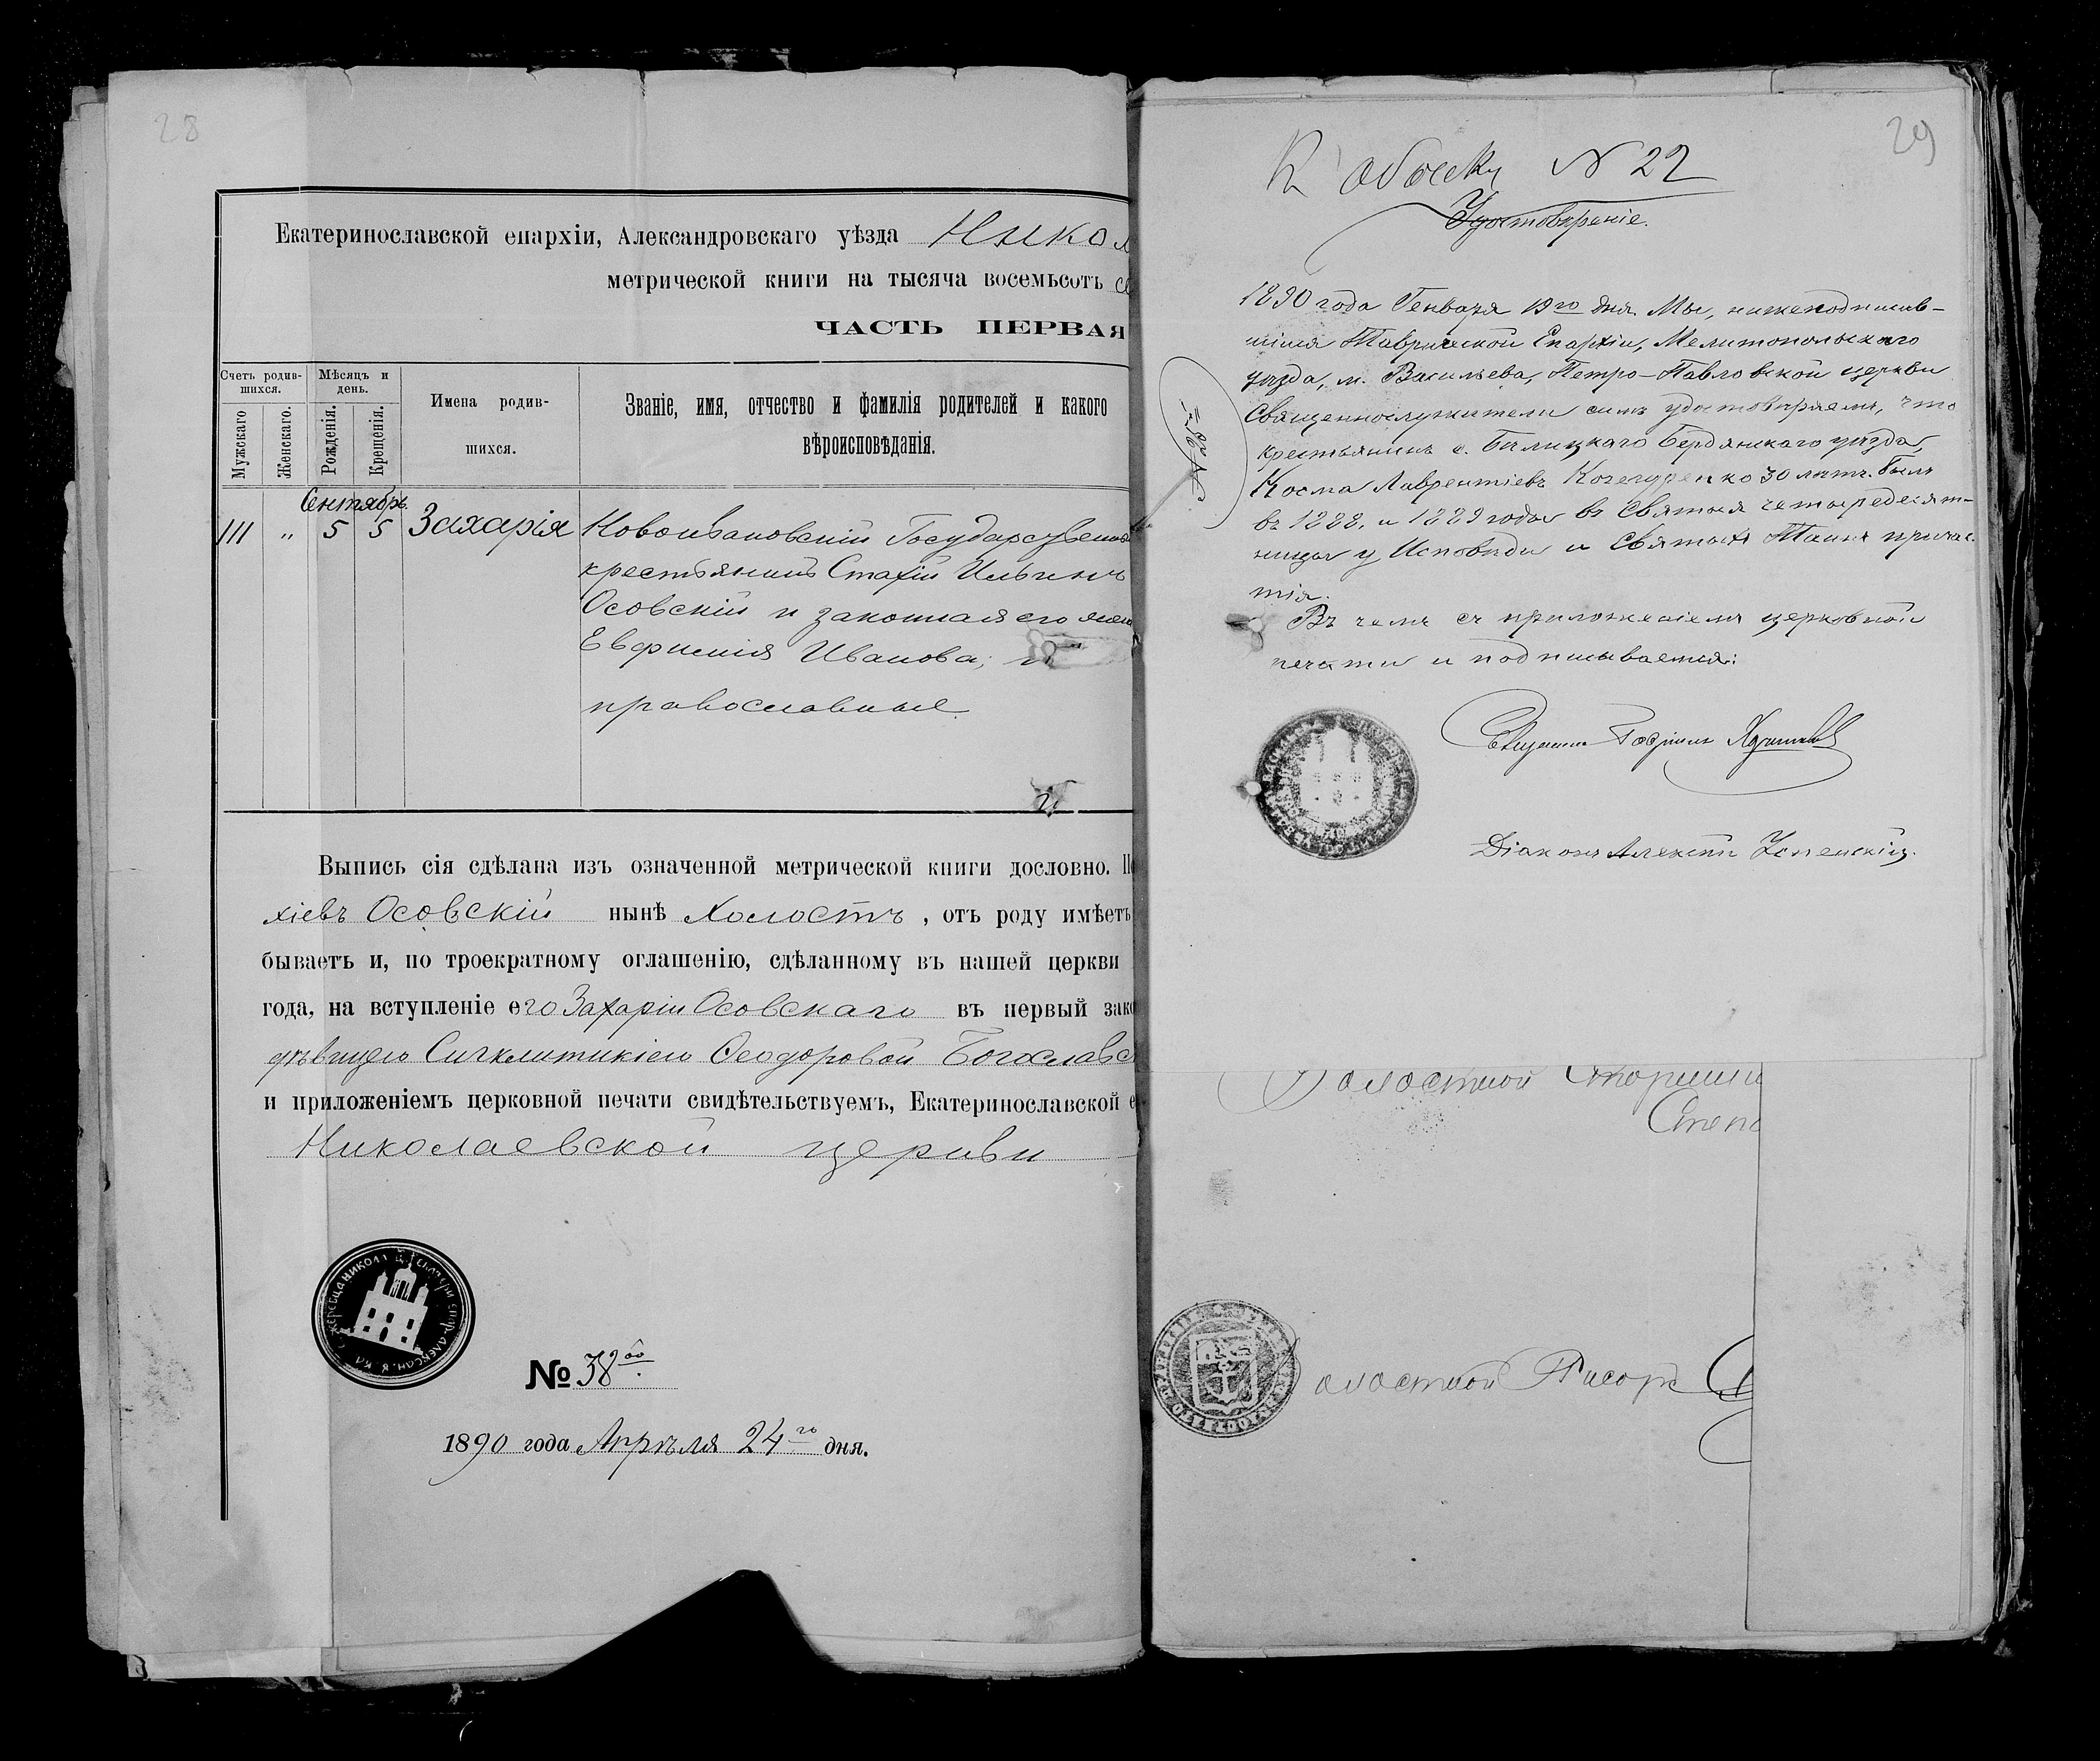 28
Екатеринославской епархіи, Александровскаго уѣзда Никол
метрической книги на тысяча восемьсотъ се
ЧАСТЬ ПЕРВАЯ
Счетъ родив-
шихся.
Мужскаго
Женскаго.
Мѣсяцъ и
день.
Рожденія.
Крещенія.
Имена родив-
шихся.
Званіе, имя, отчество и фамилія родителей и какого
вѣроисповѣданія.
Сентябрь.
111 „ 5 5 Захарія
Новоивановскій Государственный
крестьянинъ Стахій Ильинъ
Осовскій и законная его жена
Евфимія Иванова;
православные.
Выпись сія сдѣлана изъ означенной метрической книги дословно. По
хіевъ Осовскій нынѣ Холостъ, отъ роду имѣетъ
бываетъ и, по троекратному оглашенію, сдѣланному въ нашей церкви
года, на вступленіе его Захаріи Осовскаго въ первый зако
дѣвицею Сигклитикіею Ѳеодоровой Богославс
и приложеніемъ церковной печати свидѣтельствуемъ, Екатеринославской е
Николаевской церкви
№ 38
1890 года Апрѣля 24го дня.
29
К обыску N 22
Удостовѣреніе.
1890 года Генваря 19го дня. Мы, нижеподписав-
шіися Таврической Епархіи, Мелитопольскаго
уѣзда, м. Васильева, Петро-Павловской церкви
Священнослужители симъ удостовѣряемъ, что
крестьянинъ с. Бѣлицкаго Бердянскаго уѣзда,
Косма Лаврентіевъ Кочегуренко 30 лѣтъ. былъ
въ 1888. и 1889 годы въ Святыя четыредесят-
ницы у Исповѣди и Святыхъ Таинъ причас-
тія.
Въ чемъ съ приложеніемъ церковной
печати и подписываемся:
Священникъ
Діаконъ Алексѣй Успенскій.
Волостной Старшина
Степ
Волостной Писарь